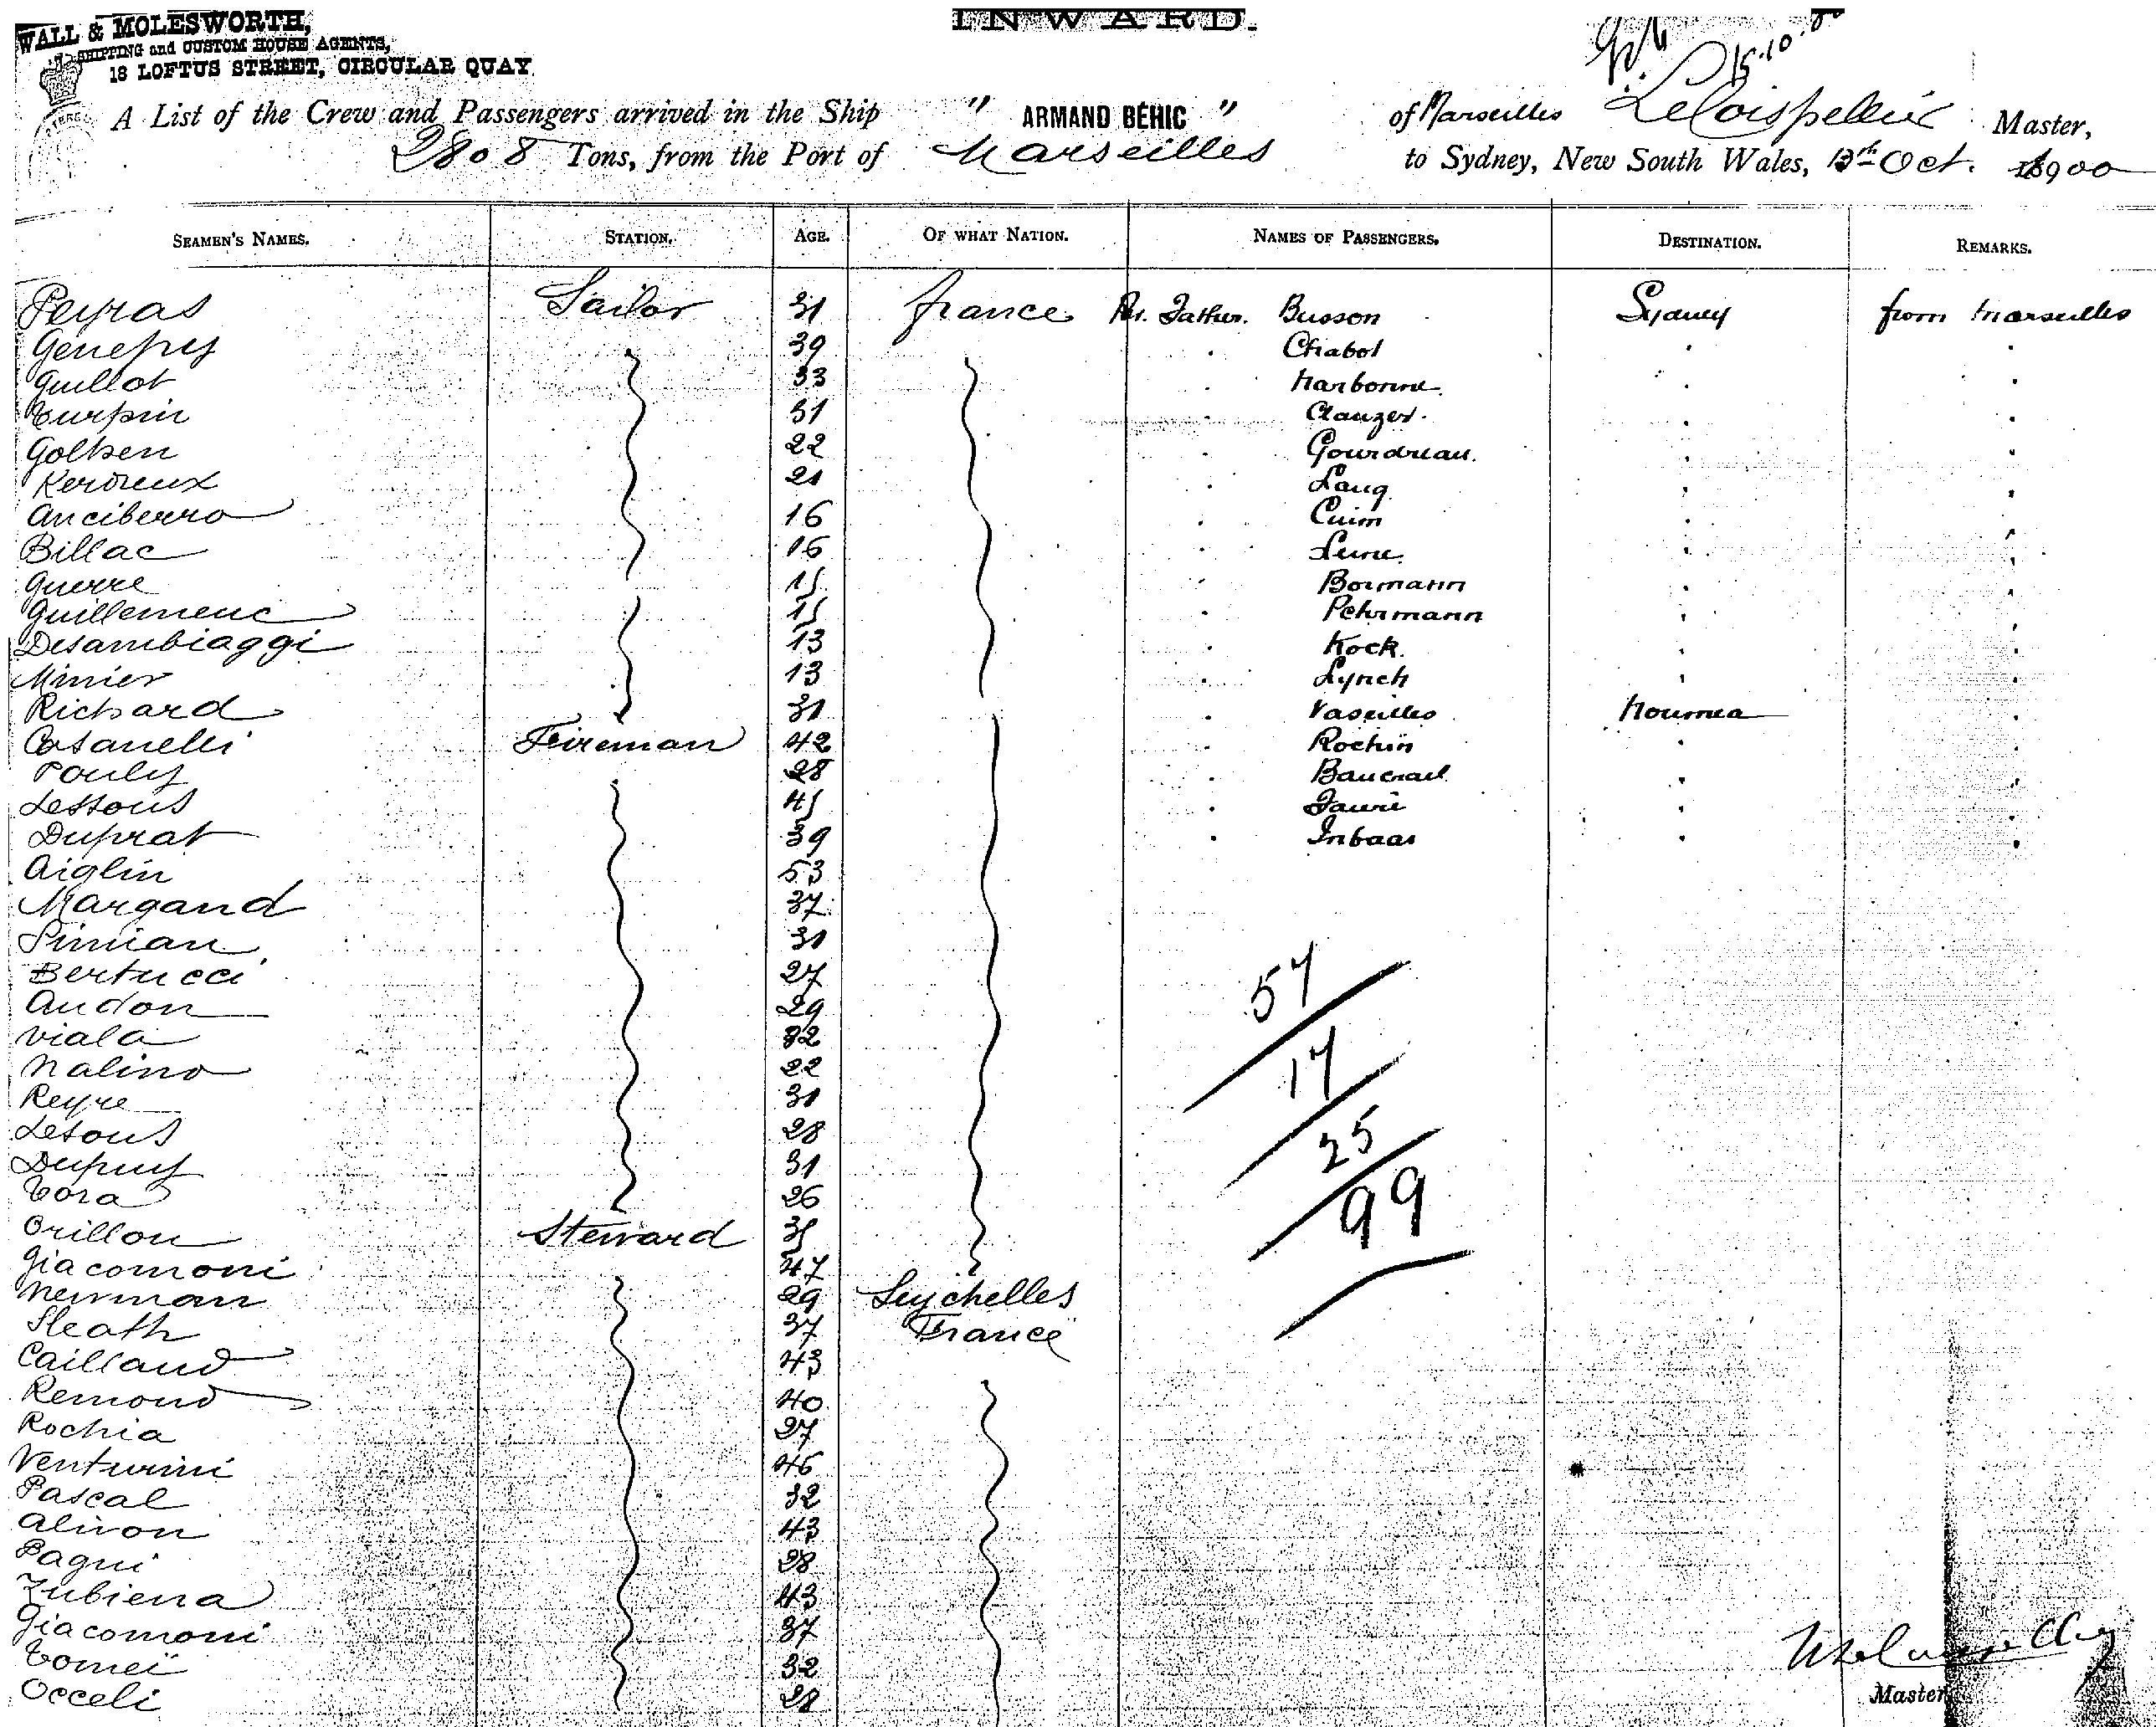 WALL & MOLESWORTH,
SHIPPING and CUSTOM HOUSE AGENTS,
18 LOFTUS STREET, CIRCULAR QUAY
INWARD.
15.10.00
A List of the Crew and Passengers arrived in the Ship " ARMAND BÉHIC " of Marseilles Master,
2808 Tons, from the Port of Marseilles to Sydney, New South Wales, 13th Oct. 1900
SEAMEN'S NAMES. STATION. AGE. OF WHAT NATION. NAMES OF PASSENGERS. DESTINATION. REMARKS.
Peyras Sailor 31 france Rv. Father. Busson Sydney from Marseilles
Genepy 39 Chabot
Guillot 33 Narbonne
Turpin 31 Clauzel
Golhen 22 Gourdreau
Kerdreux 21 Lang
Anciberro 16 Cuim
Billac 16
Guerre 15 Bormann
Guillemenc 15 Pehrmann
Desambiaggi 13 Kock.
Minier 13 Lynch
Richard 31 Vaseilles Noumea
Casanelli Fireman 42 Rochin
Pouly 28
Lessous 45 Faure
Duprat 39 Inbaas
Aiglin 53
Margand 37
Simian 31
Bertucci 27
Audon 29
Viala 32
Nalino 22
Reyre 31
Lesous 28
Dupuy 31
Tora 26
Orillon Steward 35
Giacomoni 47
Newman 29 Seychelles
Sleath 37 France
Caillaud 43
Remond 40
Rochia 27
Venturini 46
Pascal 32
Alivon 43
Pagui 28
Zubiena 43
Giacomoni 37
Tomeï 32
Occeli 28
57
17
25
99
Master